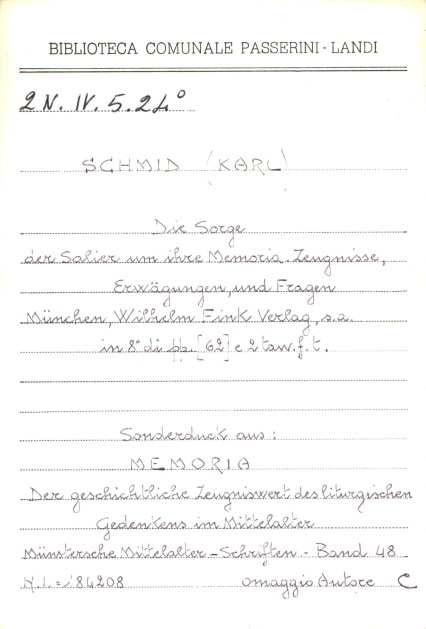 BIBLIOTECA COMUNALE PASSERINI - LANDI
2 N. IV. 5. 24°
SCHMID (KARL)
Die Sorge
der Salier um ihre Memoria. Zeugnisse,
Erwägungen, und Fragen
München, Wilhelm Fink Verlag, s.a.
in 8° di pp. [62] e 2 tav. f. t.
Sonderduck aus:
MEMORIA
Der geschichtliche Zeugniswert des liturgischen
Gedenkens im Mittelalter
Münstersche Mittelalter - Schriften - Band 48
N.I. = 184208 omaggio Autore C